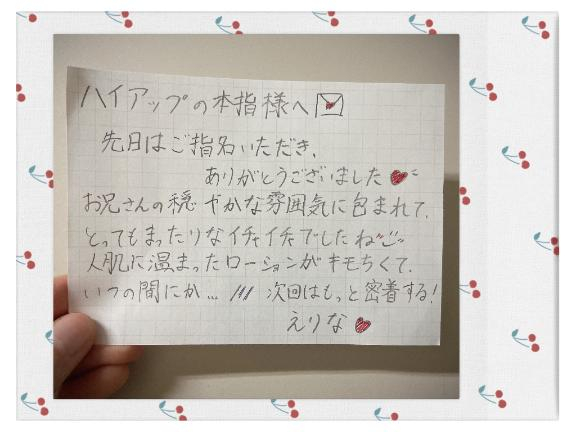 ハイアップの本指様へ
先日はご指名いただき、
ありがとうございました
お兄さんの穏やかな雰囲気に包まれて、
とってもまったりなイチャイチャでしたね
人肌に温まったローションがキモちくて、
いつの間にか… /// 次回はもっと密着する!
えりな